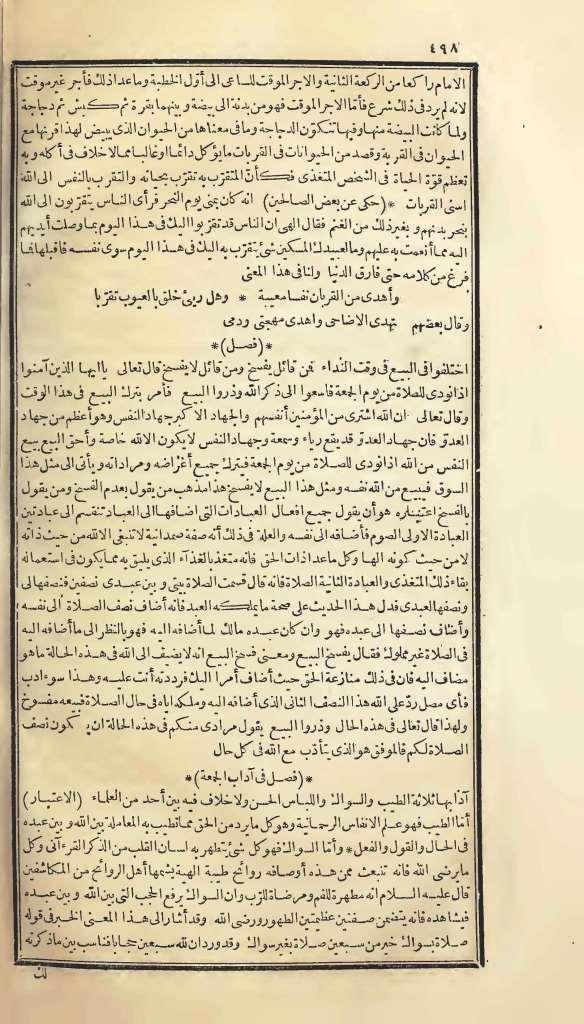 ٤٩٨
الامام راكعا من الركعة الثانية والاجر الموقت للساعى الى أوّل الخطبة وما عدا ذلك فأجر غير موقت
لانه لم يرد فى ذلك شرع فأمّا الاجر الموقت فهو من بدنة الى بيضة وبينهما بقرة ثم كبش ثم دجاجة
ولما كانت البيضة منها وفيها تتكوّن الدجاجة وما فى معناها من الحيوان الذى يبيض لهذا قرنها مع
الحيوان فى القربة وقصد من الحيوانات فى القربات ما يؤكل دائما أو غالبا مما لا خلاف فى أكله وبه
تعظم قوّة الحياة فى الشخص المتغذى فكأنّ المتقرّب به تقرّب بحياته والتقرب بالنفس الى الله
اسنى القربات * (حكى عن بعض الصالحين) انه كان بمنى يوم النحر فرأى الناس يتقرّبون الى الله
بنحر بدنهم وبغير ذلك من الغنم فقال الهى ان الناس قد تقرّبوا اليك فى هذا اليوم بما وصلت أيديهم
اليه مما أنعمت به عليهم وما لعبيدك المسكين شئ يتقرّب به اليك فى هذا اليوم سوى نفسه فاقبلها فما
فرغ من كلامه حتى فارق الدنيا ولنا فى هذا المعنى
وأهدى من القربان نفسا معيبة * وهل ربئ خلق بالعيوب تقرّبا
وقال بعضهم تهدى الاضاحى واهدى مهجتى ودمى
*(فصل)*
اختلفوا فى البيع فى وقت النداء فن قائل يفسخ ومن قائل لا يفسخ قال تعالى ياايها الذين آمنوا
اذا نودى للصلاة من يوم الجمعة فاسعوا الى ذكر الله وذروا البيع فأمر بترك البيع فى هذا الوقت
وقال تعالى ان الله اشترى من المؤمنين أنفسهم والجهاد الاكبر جهاد النفس وهو أعظم من جهاد
العدوّ فان جهاد العدوّ قد يقع رياء وسمعة وجهاد النفس لا يكون الا لله خاصة وأحق البيع بيع
النفس من الله اذا نودى للصلاة من يوم الجمعة فيترك جميع أغراضه ومراداته ويأتى الى مثل هذا
السوق فيبيع من الله نفسه ومثل هذا البيع لا يفسخ هذا مذهب من يقول بعدم الفسخ ومن يقول
بالفسخ هو أن يقول جميع افعال العبادات التى اضافها الى العباد تنقسم الى عبادتين
العبادة الاولى الصوم فأضافه الى نفسه والعلة فى ذلك أنه صفة صمدانية لا تنبغى الا لله من حيث ذاته
لا من حيث كونه الها وكل ما عدا ذات الحق فانه متغذ بالغذاء الذى يليق به مما يكون فى استعماله
بقاء ذلك المتغذى والعبادة الثانية الصلاة فانه قال قسمت الصلاة بينى وبين عبدى نصفين فنصفها لى
ونصفها لعبدى فدل هذا الحديث على صحة ما يملكه العبد فانه أضاف نصف الصلاة الى نفسه
وأضاف نصفها الى عبده فهو وان كان عبده مالك لما أضافه اليه فهو بالنظر الى ما أضافه اليه
فى الصلاة غير مملوك فقال يفسخ البيع ومعنى فسخ البيع انه لا يضيف الى الله فى هذه الحالة ما هو
مضاف اليه فان فى ذلك منازعة الحق حيث أضاف أمرا اليك فرددته أنت عليه وهذا سوء ادب
فأى مصل ردّ على الله هذا النصف الثانى الذى أضافه اليه وملكه اياه فى حال الصلاة فبيعه مفسوخ
ولهذا قال تعالى فى هذه الحال وذروا البيع يقول مرادى منكم فى هذه الحالة ان يكون نصف
الصلاة لكم فالموفق هو الذى يتأدّب مع الله فى كل حال
*(فصل فى آداب الجمعة)*
آدابها ثلاثة الطيب والسواك واللباس الحسن ولا خلاف فيه بين أحد من العلماء (الاعتبار)
أمّا الطيب فهو علم الانفاس الرحمانية وهو كل ما يرد من الحق مما تطيب به المعاملة بين الله وبين عبده
فى الحال والقول والفعل * وأمّا السواك فهو كل شئ يتطهر به لسان القلب من الذكر القرءآنى وكل
ما يرضى الله فانه تنبعث ممن هذه أوصافه روائح طيبة الهية يشمها أهل الروائح من المكاشفين
قال عليه السلام انه مطهرة للفم ومرضاة للرّب وان السواك يرفع الحجب التى بين الله وبين عبده
فيشاهده فانه يتضمن صفتين عظيمتين الطهور ورضى الله وقد أشار الى هذا المعنى الخبر فى قوله
صلاة بسواك خير من سبعين صلاة بغير سواك وقد ورد ان لله سبعين حجابا فناسب بين ما ذكرته
لك